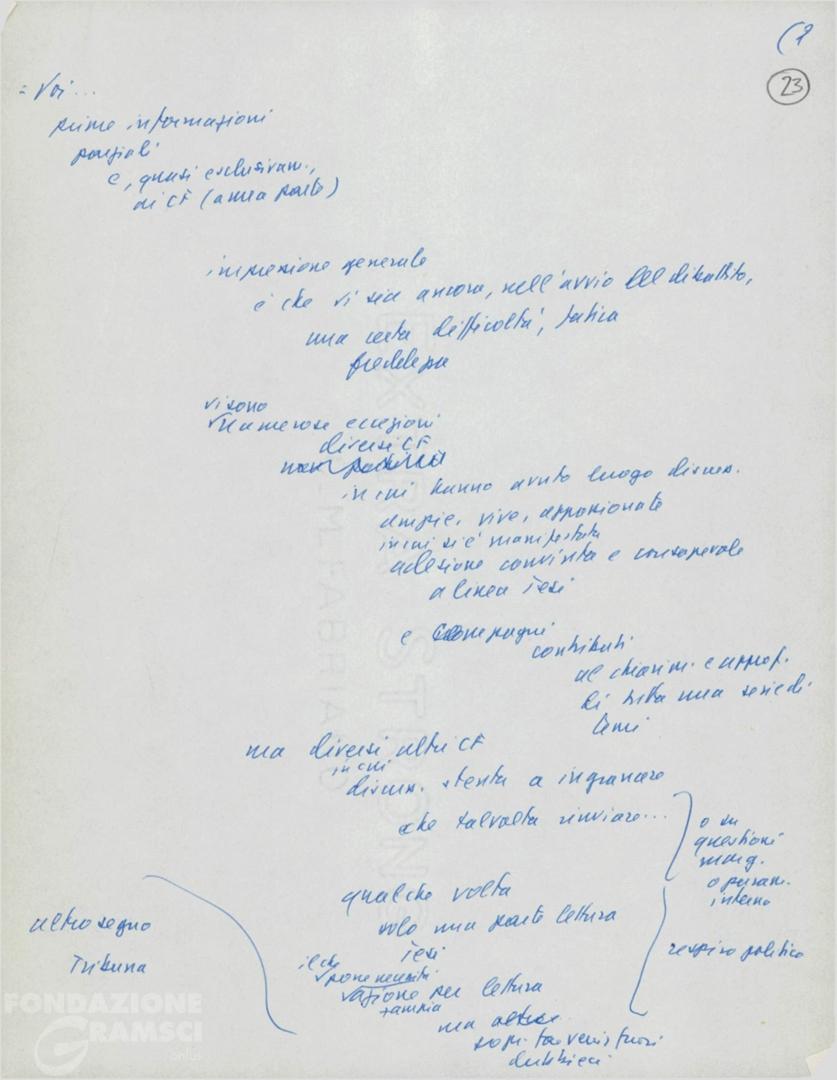 (2
23
= Voi...
prime informazioni
parziali
e, quasi esclusivam.,
di CF (a mia parte)
impressione generale
è che vi sia ancora, nell'avvio del dibattito,
una certa difficoltà, fatica
freddezza
vi sono
numerose eccezioni
diversi CF
in cui hanno avuto luogo discuss.
ampie, vive, appassionate
in cui si è manifestata
adesione convinta e consapevole
a linea Tesi
e
contributi
al chiarim. e approf.
di tutta una serie di
temi
ma diversi altri CF
in cui
discuss. stenta a ingranare
che talvolta rinviare...
o su
questioni
marg.
o puram.
interno
qualche volta
solo una parte lettura
Tesi
respiro politico
altro segno
Tribuna
il che
pone necessità
azione per lettura
+ ampia
ma
sopr. far venir fuori
dubbi ecc.
FONDAZIONE
GRAMSCI
onlus